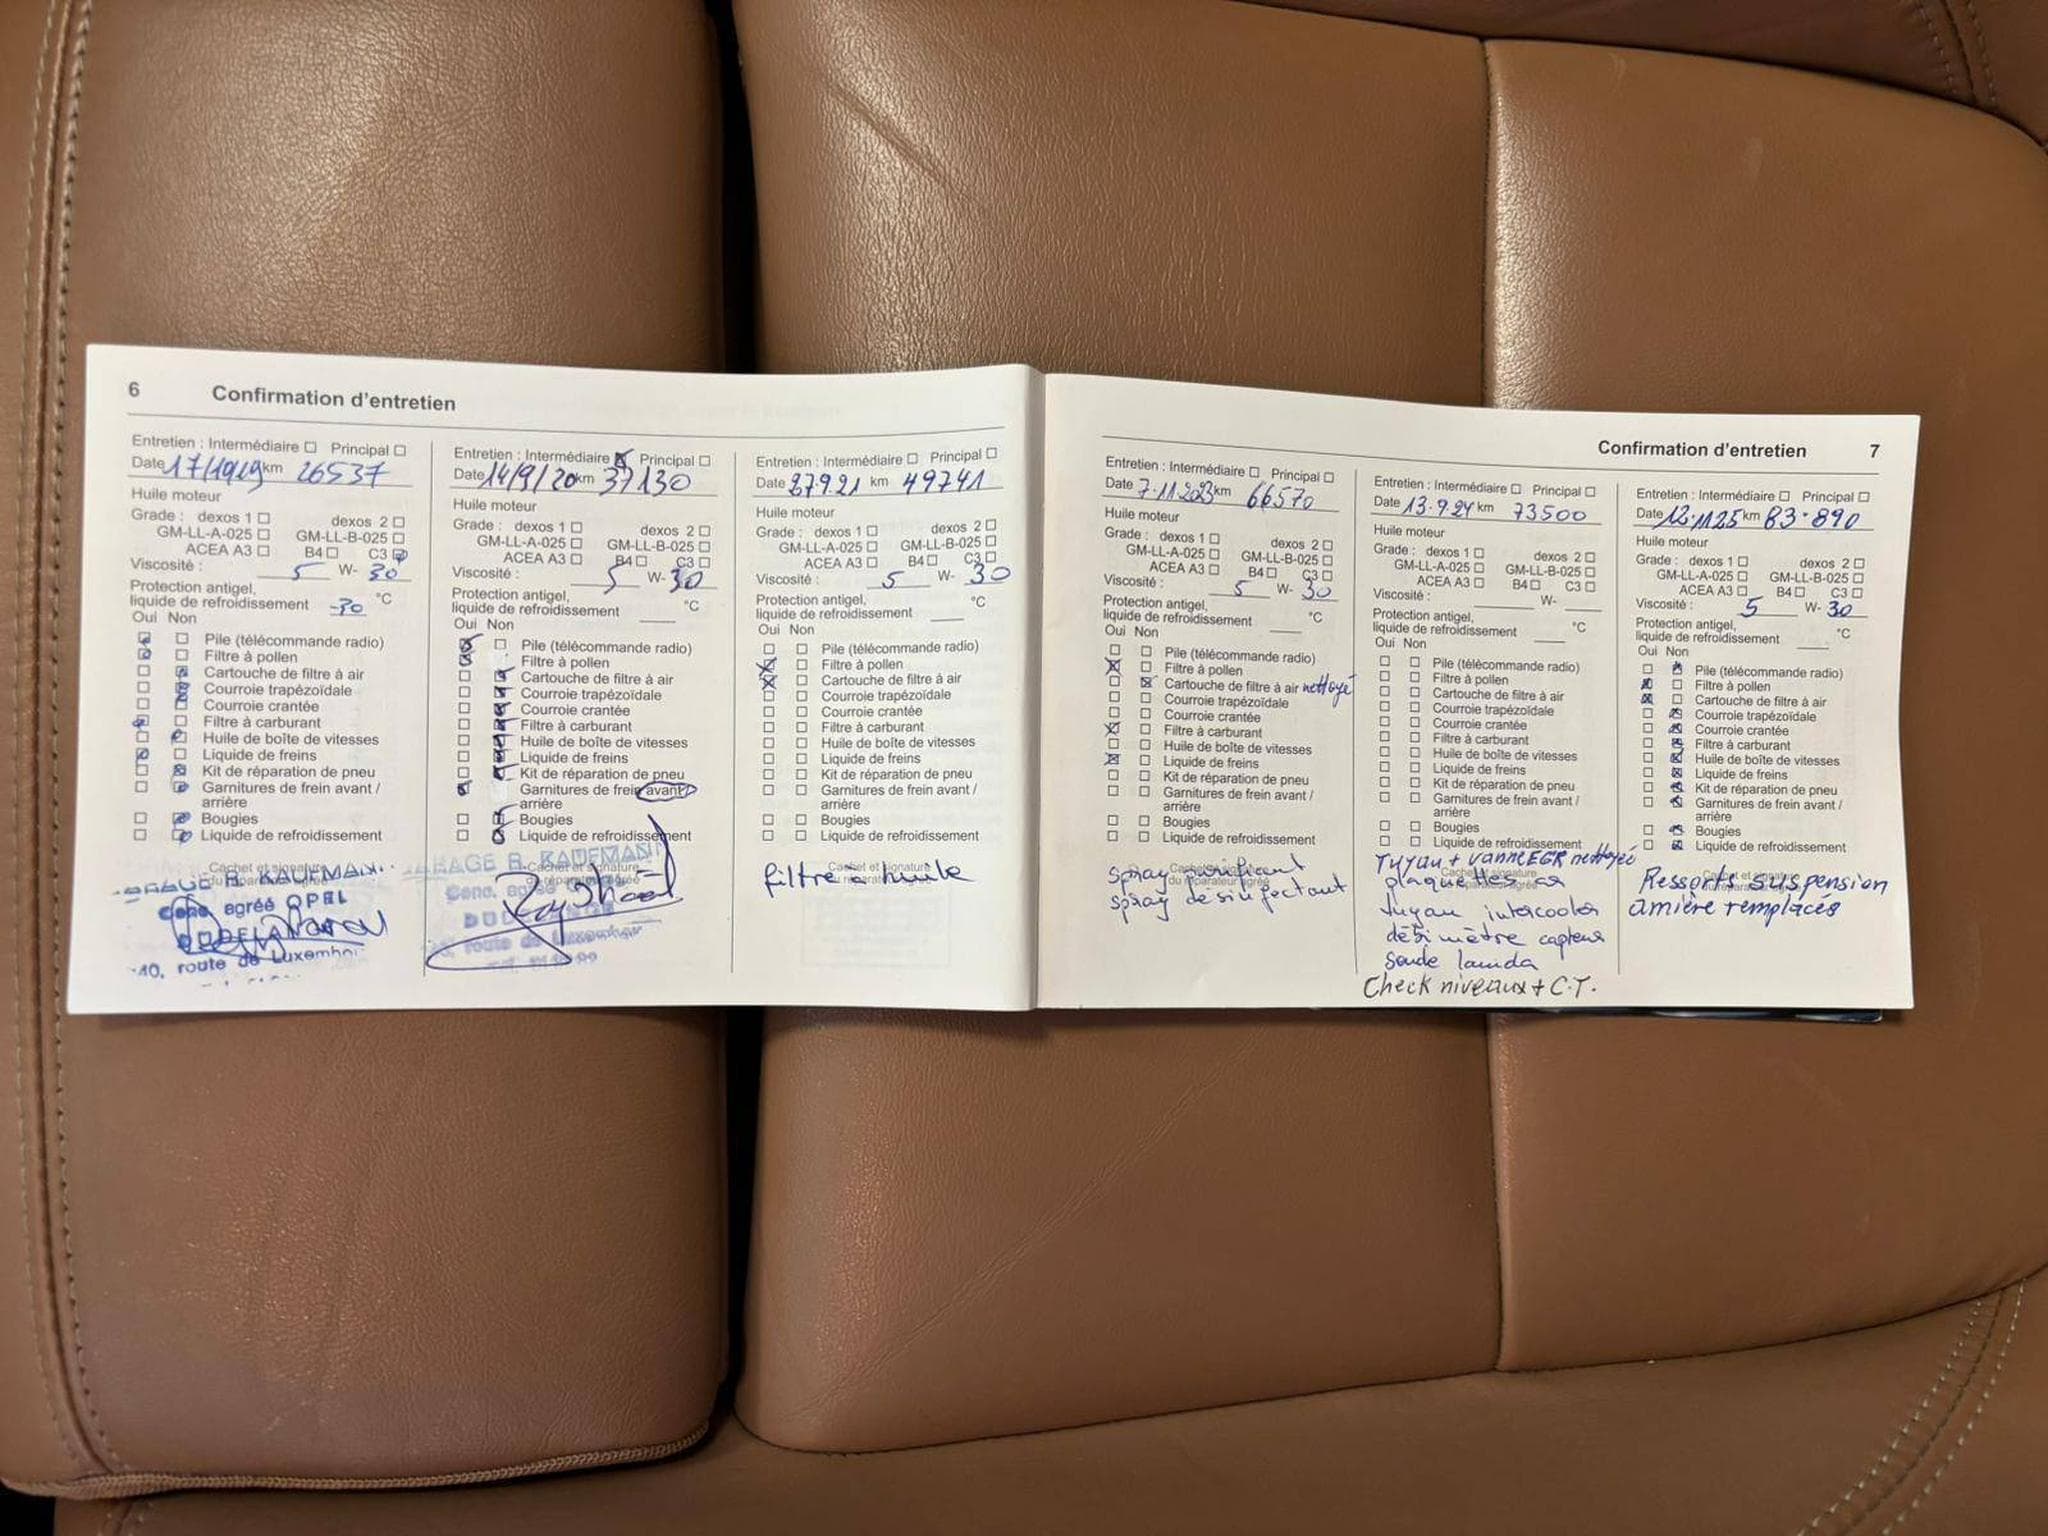 6 Confirmation d'entretien
Entretien : Intermédiaire Principal
Date 17/19/19 km 26537
Huile moteur
Grade : dexos 1 dexos 2
GM-LL-A-025 GM-LL-B-025
ACEA A3 B4 C3
Viscosité : 5 W- 30
Protection antigel,
liquide de refroidissement -30 °C
Oui Non
Pile (télécommande radio)
Filtre à pollen
Cartouche de filtre à air
Courroie trapézoïdale
Courroie crantée
Filtre à carburant
Huile de boîte de vitesses
Liquide de freins
Kit de réparation de pneu
Garnitures de frein avant /
arrière
Bougies
Liquide de refroidissement
Cachet et signature
GARAGE R. KAUFMANN
Conc. agréé OPEL
DUDELANGE
40, route de Luxembo
Entretien : Intermédiaire Principal
Date 14/9/20 km 37130
Huile moteur
Grade : dexos 1 dexos 2
GM-LL-A-025 GM-LL-B-025
ACEA A3 B4 C3
Viscosité : 5 W- 30
Protection antigel,
liquide de refroidissement °C
Oui Non
Pile (télécommande radio)
Filtre à pollen
Cartouche de filtre à air
Courroie trapézoïdale
Courroie crantée
Filtre à carburant
Huile de boîte de vitesses
Liquide de freins
Kit de réparation de pneu
Garnitures de frein avant
arrière
Bougies
Liquide de refroidissement
Cachet et signature
du réparateur agréé
GARAGE R. KAUFMANN
Conc. agréé
route de Luxembour
Entretien : Intermédiaire Principal
Date 27.9.21 km 49741
Huile moteur
Grade : dexos 1 dexos 2
GM-LL-A-025 GM-LL-B-025
ACEA A3 B4 C3
Viscosité : 5 W- 30
Protection antigel,
liquide de refroidissement °C
Oui Non
Pile (télécommande radio)
Filtre à pollen
Cartouche de filtre à air
Courroie trapézoïdale
Courroie crantée
Filtre à carburant
Huile de boîte de vitesses
Liquide de freins
Kit de réparation de pneu
Garnitures de frein avant /
arrière
Bougies
Liquide de refroidissement
Cachet et signature
du réparateur agréé
filtre à huile
Confirmation d'entretien 7
Entretien : Intermédiaire Principal
Date 7.11.2023 km 66570
Huile moteur
Grade : dexos 1 dexos 2
GM-LL-A-025 GM-LL-B-025
ACEA A3 B4 C3
Viscosité : 5 W- 30
Protection antigel,
liquide de refroidissement °C
Oui Non
Pile (télécommande radio)
Filtre à pollen
Cartouche de filtre à air nettoyé
Courroie trapézoïdale
Courroie crantée
Filtre à carburant
Huile de boîte de vitesses
Liquide de freins
Kit de réparation de pneu
Garnitures de frein avant /
arrière
Bougies
Liquide de refroidissement
Cachet et signature
du réparateur agréé
spray purifiant
spray désinfectant
Entretien : Intermédiaire Principal
Date 13.9.24 km 73500
Huile moteur
Grade : dexos 1 dexos 2
GM-LL-A-025 GM-LL-B-025
ACEA A3 B4 C3
Viscosité : W-
Protection antigel,
liquide de refroidissement °C
Oui Non
Pile (télécommande radio)
Filtre à pollen
Cartouche de filtre à air
Courroie trapézoïdale
Courroie crantée
Filtre à carburant
Huile de boîte de vitesses
Liquide de freins
Kit de réparation de pneu
Garnitures de frein avant /
arrière
Bougies
Liquide de refroidissement
Cachet et signature
du réparateur agréé
Tuyau + vanne EGR nettoyé
plaquettes ar
tuyau intercooler
débimètre capteur
sonde lamda
Check niveaux + C.T.
Entretien : Intermédiaire Principal
Date 12.11.25 km 83.890
Huile moteur
Grade : dexos 1 dexos 2
GM-LL-A-025 GM-LL-B-025
ACEA A3 B4 C3
Viscosité : 5 W- 30
Protection antigel,
liquide de refroidissement °C
Oui Non
Pile (télécommande radio)
Filtre à pollen
Cartouche de filtre à air
Courroie trapézoïdale
Courroie crantée
Filtre à carburant
Huile de boîte de vitesses
Liquide de freins
Kit de réparation de pneu
Garnitures de frein avant /
arrière
Bougies
Liquide de refroidissement
Cachet et signature
du réparateur agréé
Ressorts suspension
arrière remplacés